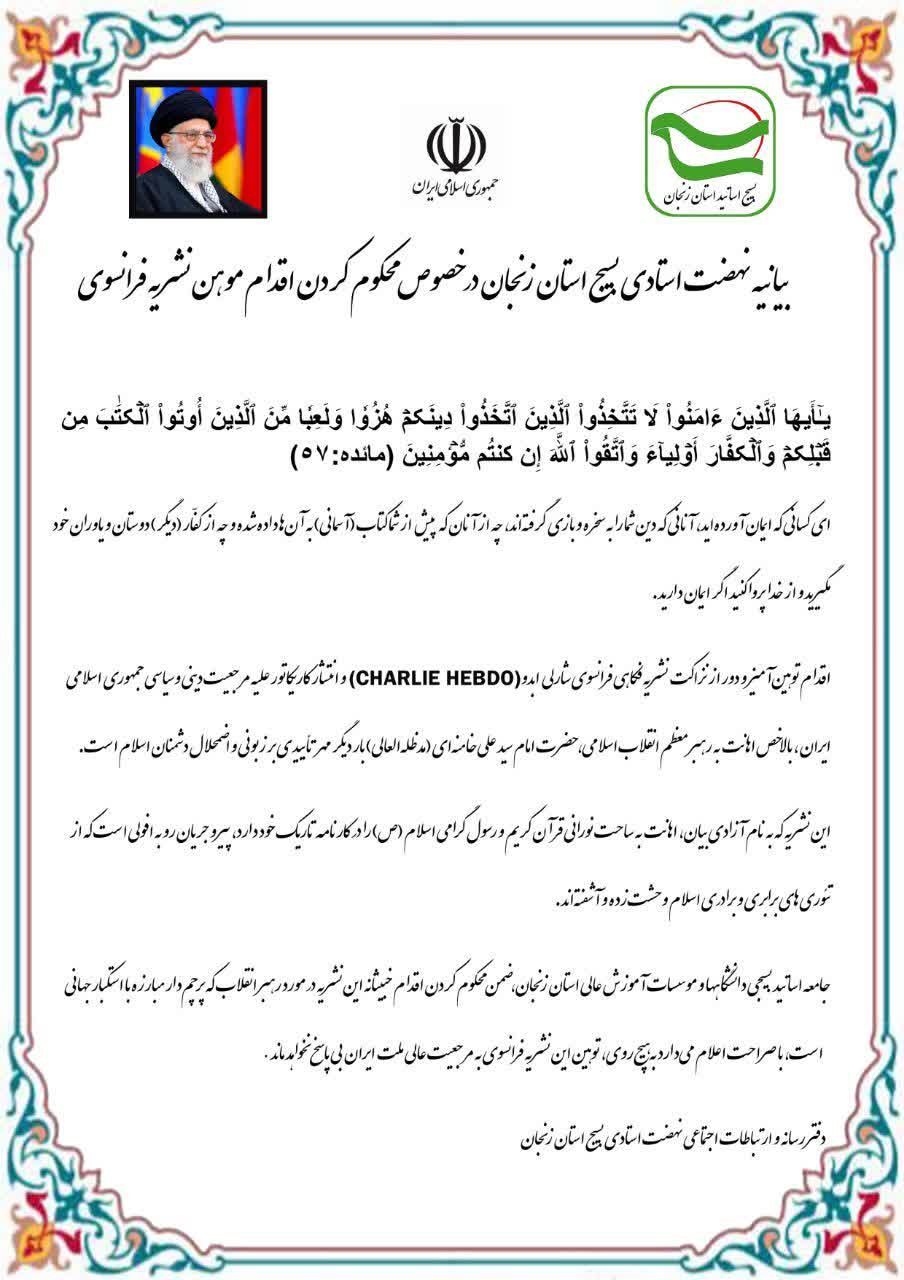 جمهوری اسلامی ایران
بسیج اساتید استان زنجان
بیانیه نهضت استادی بسیج استان زنجان در خصوص محکوم کردن اقدام موهن نشریه فرانسوی
يَـٰٓأَيُّهَا ٱلَّذِينَ ءَامَنُواْ لَا تَتَّخِذُواْ ٱلَّذِينَ ٱتَّخَذُواْ دِينَكُمۡ هُزُوٗا وَلَعِبٗا مِّنَ ٱلَّذِينَ أُوتُواْ ٱلۡكِتَٰبَ مِن
قَبۡلِكُمۡ وَٱلۡكُفَّارَ أَوۡلِيَآءَ وَٱتَّقُواْ ٱللَّهَ إِن كُنتُم مُّؤۡمِنِينَ (مائده:۵۷)
ای کسانی که ایمان آورده‌اید، آنانی که دین شما را به سخره و بازی گرفته‌اند، چه از آنان که پیش از شما کتاب (آسمانی) به آن‌ها داده شده و چه از کفّار (دیگر) دوستان و یاوران خود
مگیرید و از خدا پروا کنید اگر ایمان دارید.
اقدام توهین‌آمیز و دور از نزاکت نشریه فکاهی فرانسوی شارلی ابدو (CHARLIE HEBDO) و انتشار کاریکاتور علیه مرجعیت دینی و سیاسی جمهوری اسلامی
ایران، بالاخص اهانت به رهبر معظم انقلاب اسلامی، حضرت امام سید علی خامنه‌ای (مدظله العالی) بار دیگر مهر تأییدی بر زبونی و اضمحلال دشمنان اسلام است.
این نشریه که به نام آزادی بیان، اهانت به ساحت نورانی قرآن کریم و رسول گرامی اسلام (ص) را در کارنامه تاریک خود دارد، پیرو جریان رو به افولی است که از
تئوری های برابری و برادری اسلام وحشت زده و آشفته‌اند.
جامعه اساتید بسیجی دانشگاهها و موسسات آموزش عالی استان زنجان، ضمن محکوم کردن اقدام خبیثانه این نشریه در مورد رهبر انقلاب که پرچم دار مبارزه با استکبار جهانی
است، با صراحت اعلام می‌دارد به هیچ روی، توهین این نشریه فرانسوی به مرجعیت عالی ملت ایران بی پاسخ نخواهد ماند.
دفتر رسانه و ارتباطات اجتماعی نهضت استادی بسیج استان زنجان